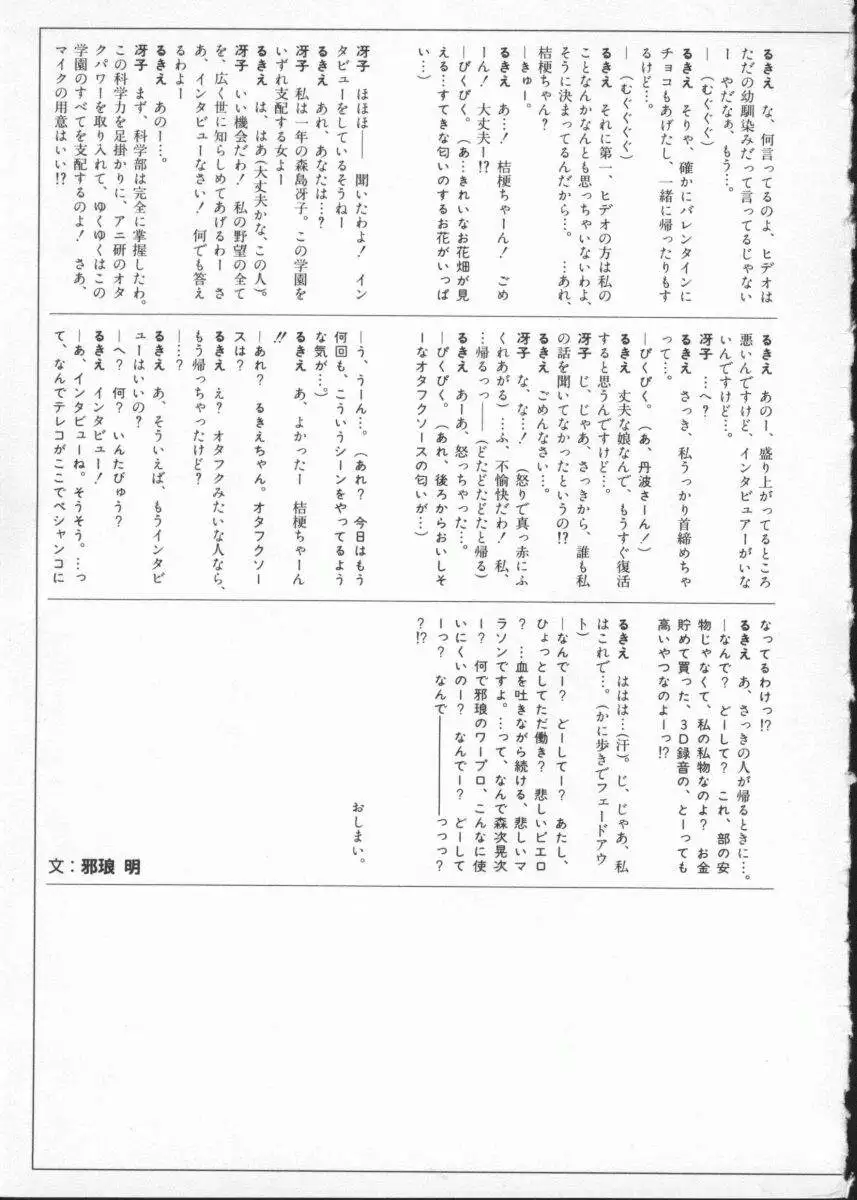 るきえ　な、何言ってるのよ、ヒデオは
ただの幼馴染みだって言ってるじゃない
ー　やだなぁ、もう…。
―（むぐぐぐ）
るきえ　そりゃ、確かにバレンタインに
チョコもあげたし、一緒に帰ったりもす
るけど…。
―（むぐぐぐぐ）
るきえ　それに第一、ヒデオの方は私の
ことなんかなんとも思っちゃいないわよ、
そうに決まってるんだから…。　…あれ、
桔梗ちゃん？
―きゅー。
るきえ　あ…！　桔梗ちゃーん！　ごめ
ーん！　大丈夫ー!?
―ぴくぴく。（あ…きれいなお花畑が見
える…すてきな匂いのするお花がいっぱ
い…）
冴子　ほほほ――　聞いたわよ！　イン
タビューをしているそうねー
るきえ　あれ、あなたは…？
冴子　私は一年の森島冴子。この学園を
いずれ支配する女よー
るきえ　は、はあ（大丈夫かな、この人）。
冴子　いい機会だわ！　私の野望の全て
を、広く世に知らしめてあげるわー　さ
あ、インタビューなさい！　何でも答え
るわよー
るきえ　あのー…。
冴子　まず、科学部は完全に掌握したわ。
この科学力を足掛かりに、アニ研のオタ
クパワーを取り入れて、ゆくゆくはこの
学園のすべてを支配するのよ！　さあ、
マイクの用意はいい!?
るきえ　あのー、盛り上がってるところ
悪いんですけど、インタビュアーがいな
いんですけど…。
冴子　…へ？
るきえ　さっき、私うっかり首締めちゃ
って…。
―ぴくぴく。（あ、丹波さーん！）
るきえ　丈夫な娘なんで、もうすぐ復活
すると思うんですけど…。
冴子　じ、じゃあ、さっきから、誰も私
の話を聞いてなかったというの!?
るきえ　ごめんなさい…。
冴子　な、な…！　（怒りで真っ赤にふ
くれあがる）…ふ、不愉快だわ！　私、
…帰るっっ――（どたどたどたと帰る）
るきえ　あーあ、怒っちゃった…。
―ぴくぴく。（あれ、後ろからおいしそ
ーなオタフクソースの匂いが…）
―う、うーん…。（あれ？　今日はもう
何回も、こういうシーンをやってるよう
な気が…。）
るきえ　あ、よかったー　桔梗ちゃーん
!!
―あれ？　るきえちゃん。オタフクソー
スは？
るきえ　え？　オタフクみたいな人なら、
もう帰っちゃったけど？
―…？
るきえ　あ、そういえば、もうインタビ
ューはいいの？
―へ？　何？　いんたびゅう？
るきえ　インタビュー！
―あ、インタビューね。そうそう。…っ
て、なんでテレコがここでペシャンコに
なってるわけっ!?
るきえ　あ、さっきの人が帰るときに…。
―なんで？　どーして？　これ、部の安
物じゃなくて、私の私物なのよ？　お金
貯めて買った、3D録音の、とーっても
高いやつなのよーっ!?
るきえ　ははは…（汗）。じ、じゃあ、私
はこれで…。（かに歩きでフェードアウ
ト）
―なんでー？　どーしてー？　あたし、
ひょっとしてただ働き？　悲しいピエロ
？　…血を吐きながら続ける、悲しいマ
ラソンですよ。…って、なんで森次晃次
ー？　何で邪琅のワープロ、こんなに使
いにくいのー？　なんでー？　どーして
ーっ？　なんで――――――っっっ？
?!?
おしまい。
文：邪琅　明